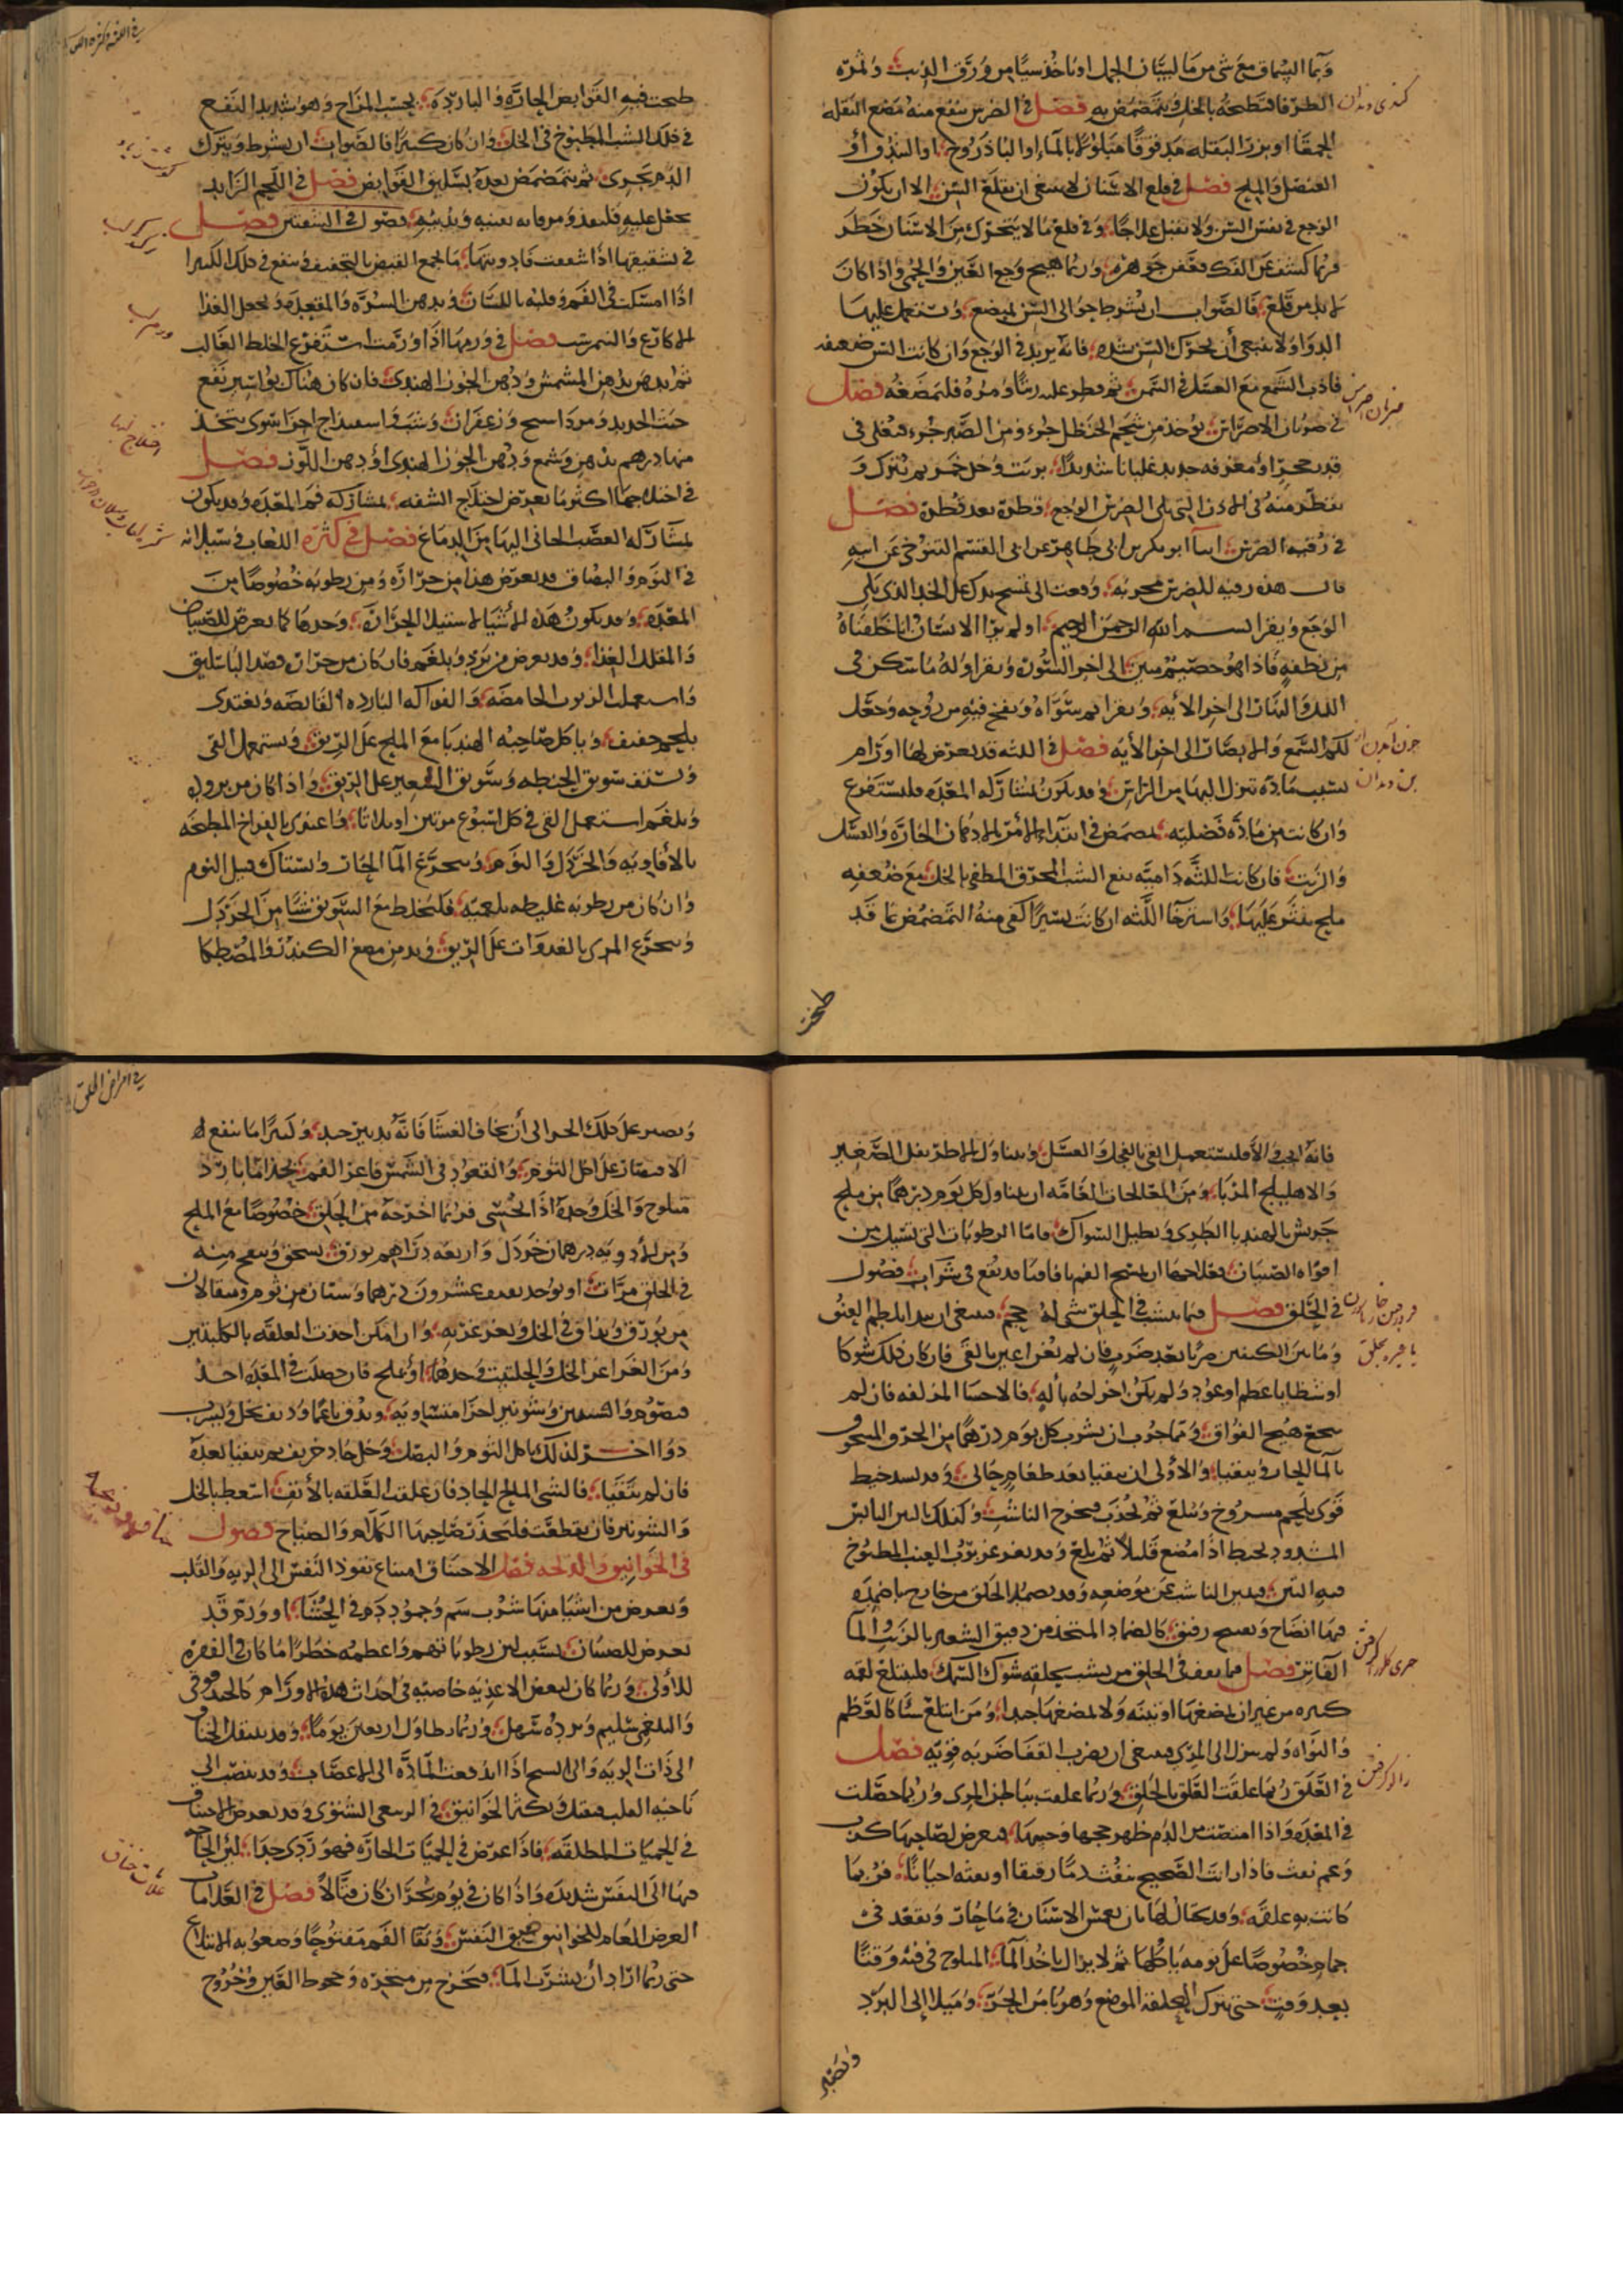 وبما السماق مع شي من ما لسان الحمل او ياخذ سيا من ورق الزيت والمره
الطرفا فتطبخه بالخل ويتمضمض به فصل في الضرس ينفع منه مضغ البقله
الحمقا او بزر البقله مدقوقا مبلولا بالماء او الباذروج او الشذاب او
العنصل والملح فصل في قلع الاسنان لا ينبغي ان يقلع السن الا ان يكون
الوجع في نفس السن ولا يقبل علاجا وفي قلع ما لا يتحرك من الاسنان خطر
فربما كشف عن الفك فعفن جوهره وربما هيج وجع العين والحمى واذا كان
لا بد من قلع فالصواب ان يشرط حوالى السن بمبضع ويستعمل عليها
الدوا ولا ينبغي أن يحرك السن بشده فانه يزيد في الوجع وان كانت السن ضعيفه
فاذب الشمع مع العسل في الشمس ثم قطر عليه زيتا ومره فليمضغه فصل
في ضربان الاضراس يوخذ من شحم الحنظل جزء ومن الصبر جزء فيغلى في
قدر حجر او مغرفه حديد غليانا شديدا بزيت وخل خمر ثم يترك و
يقطر منه في الاذن التي تلي الضرس الوجع قطره بعد قطره فصل
في رقيه الضرس ابنا ابو بكر بن ابي طاهر عن ابي القسم التنوخي عن ابيه
قال هذه رقيه للضرس مجربه وقعت الي تمسح يدك على الخد الذي يلي
الوجع ويقرا بسم الله الرحمن الرحيم اولم ير الانسان انا خلقناه
من نطفه فاذا هو خصيم مبين الى اخر السوره ويقرا وله ما سكن في
الليل والنهار الى اخر الايه ويقرا ثم سواه ونفخ فيه من روحه وجعل
لكم السمع والابصار الى اخر الأيه فصل في اللثه قد يعرض لها اورام
بسبب ماده تنزل اليها من الراس وقد يكون بمشاركه المعده فليستفرغ
وان كانت من ماده فضليه تمضمض في ابتداء الأمر بالادهان الحاره والعسل
والزيت فان كانت اللثه داميه ينفع الشب المحرق المطفي بالخل مع ضعفيه
ملح ينثر عليها واسترخا اللثه ان كانت يسيرا كفى منه التمضمض بما قد
طبخت
كندى دندان
ضربان ضرس
بن دندان
طبخت فيه القوابض الحاره والبارده بحسب المزاج وهو شديد النفع
في ذلك الشب المطبوخ في الخل وان كان كبيرا فالصواب ان يشرط ويترك
الدم يجري ثم يتمضمض بعده بسليق القوابض فصل في اللحم الزايد
يجعل عليه قلقند ومر فانه يفنيه ويذيبه فصول في الشفتين فصل
في تشقيقها اذا شققت فادويتها ما يجمع القبض بالتجفيف وينفع في ذلك الكثيرا
اذا امسكت في الفم وقلبه باللسان وبدهن السره والمقعده ويجعل الغذا
الاكارع والنيمرشت فصل في ورمها اذا ورمت استفرغ الخلط الغالب
ثم يدهن بدهن المشمش ودهن الجوز الهندي فان كان هناك بواسير نفع
خبث الحديد ومرداسنج وزعفران وشب واسفيداج اجزا سوى يتخذ
منها درهم بدهن وشمع ودهن الجوز الهندي او دهن اللوز فصل
في اختلاجها اكثر ما يعرض اختلاج الشفه بمشاركه فم المعده وقد يكون
بمشاركه العصب الجائي اليها من الدماغ فصل في كثره اللعاب في سيلانه
في النوم والبصاق قد يعرض هذا من حراره ومن رطوبه خصوصا من
المعده وقد يكون هذه الأشيا لاستيلا الحراره وحدها كما يعرض للصيام
والمقلل الغذا وقد يعرض من برد وبلغم فان كان من حراره فصد الباسليق
واستعمل الربوب الحامضه والفواكه البارده القابضه ويغتذى
بلحم خفيف وياكل صاحبه الهندبا مع الملح على الريق ويستعمل القى
ويستف سويق الحنطه وسويق الشعير على الريق واذا كان من بروده
وبلغم استعمل القى في كل اسبوع مرتين او ثلاثا واغتذى بالفراخ المطجنه
بالأفاويه والخردل والثوم ويتجرع الما الحار ويستاك قبل النوم
وان كان من رطوبه غليظه بلغميه فليخلط مع السويق شيا من الخردل
ويتجرع المري بالغدوات على الريق ويدمن مضغ الكندر والمصطكا
ورم لب
فانه الجيد والا فليستعمل القى بالفجل والعسل ويتناول الاطريفل الصغير
والاهليلج المربا ومن المعالجات العامه ان يتناول كل يوم درهما من ملح
جريش بالهندبا الطري ويطيل السواك فاما الرطوبات التي تسيل من
افواه الصبيان فعلاجها ان يمسح الفم باقاقيا قد نقع في شراب فصول
في الحلق فصل فيما ينشب في الحلق شي له حجم فينبغي ان يبدا بلطم العنق
وما بين الكتفين ضربا بعد ضرب فان لم يغن اعين بالقى فان كان ذلك شوكا
او شظايا عظم او عود ولم يكن اخراجه بآله فالاحسا المزلقه فان لم
ينجع هيج الفواق ومما جرب ان يشرب كل يوم درهما من الحرف المسحوق
بالما الحار ويتقيا والأولى ان يتقيا بعد طعام مالي وقد يشد خيط
قوى بلحم مشروخ ويبلع ثم يجذب فيخرج الناشب وكذلك التين اليابس
المشدود بخيط اذا مضغ قليلا ثم بلع وقد يغرغر برب العنب المطبوخ
فيه التين فيلين الناشب عن موضعه وقد يضمد الحلق من خارج باضمده
فيها انضاج وتفتيح رقيق كالضماد المتخذ من دقيق الشعير بالزيت الما
الفاتر فصل فيما يقف في الحلق من ينشب بحلقه شوك السمك فليبتلع لقمه
كبيره من غير ان يمضغها او تينه ولا يمضغها جيدا ومن ابتلع شيا كالعظم
والنواه ولم ينزل الى المري فينبغي ان يضرب القفا ضربه قويه فصل
في العلق ربما علقت العلق بالحلق وربما علقت بباطن المري وربما حصلت
في المعده واذا امتصت من الدم ظهر حجمها وحسها فيعرض لصاحبها كرب
وغم نفث فاذا رايت الصحيح ينفث دما رقيقا او يقيه احيانا فربما
كانت به علقه وقد يحتال لها بان يغمس الانسان في ما حار ويقعد في
حمام خصوصا على ثومه ياكلها ثم لا يزال ياخذ الما المثلوج في فيه وقتا
بعد وقت حتى تترك العلقه الموضع وهربا من الحر وميلا الى البرد
وتصبر
في امراض الحلق
ويصبر على ذلك الحر الى أن يخاف الغشا فانه تدبير جيد وكثيرا ما ينفع له
الاقتصار على اكل الثوم والقعود في الشمس فاغر الفم بحذا ما بارد
مثلوج والخل وحده اذا تحسى فربما اخرجه من الحلق خصوصا مع الملح
ومن الأدويه درهمان خردل واربعه دراهم بورق يسحق وينفخ منه
في الحلق مرات او يوخذ عشرون درهما وسنان من ثوم ومثقالان
من بورق ويذاق في الخل ويغرغر به وان امكن اخذت العلقه بالكلبتين
ومن الغراغر الخل والحلتيت وحدهما او ملح فان حصلت في المعده اخذ
قيصوم وافسنتين وشونيز اجزا متساويه ويدق ناعما ويداف بخل ويشرب
دوا اخر لذلك ياكل الثوم والبصل وخل حاد خريف ثم يتقيا بعده
فان لم يتقيا فالشى المالح الحاد فان علقت العلقه بالأنف استعط بالخل
والشونيز فان تقطعت فليحذر صاحبها الكلام والصياح فصول
في الخوانيق والذبحه فصل الاختناق امتناع نفوذ النفس الى الريه والقلب
ويعرض من اشيا منها شرب سم وجمود دم في الحشا او ورم قد
يعرض للصبيان بسبب لين رطوباتهم واعظمه خطرا ما كان في الفقره
للأولى وربما كان لبعض الاغذيه خاصيه في احداث هذه الاورام كالحندقوقي
والبلغمي سليم وبرده سهل وربما تطاول اربعين يوما وقد ينتقل الخناق
الى ذات الريه والى التشنج اذا اندفعت الماده الى الاعصاب وقد تنصب الى
ناحيه القلب فيقتل ويكثر الخوانيق في الربيعي الشتوي وقد يعرض الاختناق
في الحميات المطلقه فاذا عرض في الحميات الحاره فهو ردي جدا لان الحاجه
فيها الى النفس شديده واذا كان في يوم بحران كان قتالا فصل في العلامات
العرض العام للخوانيق ضيق النفس وبقا الفم مفتوحا وصعوبه الابتلاع
حتى ربما اراد أن يشرب الما فيخرج من منخره وجحوظ العين وخروج
علامات خناق